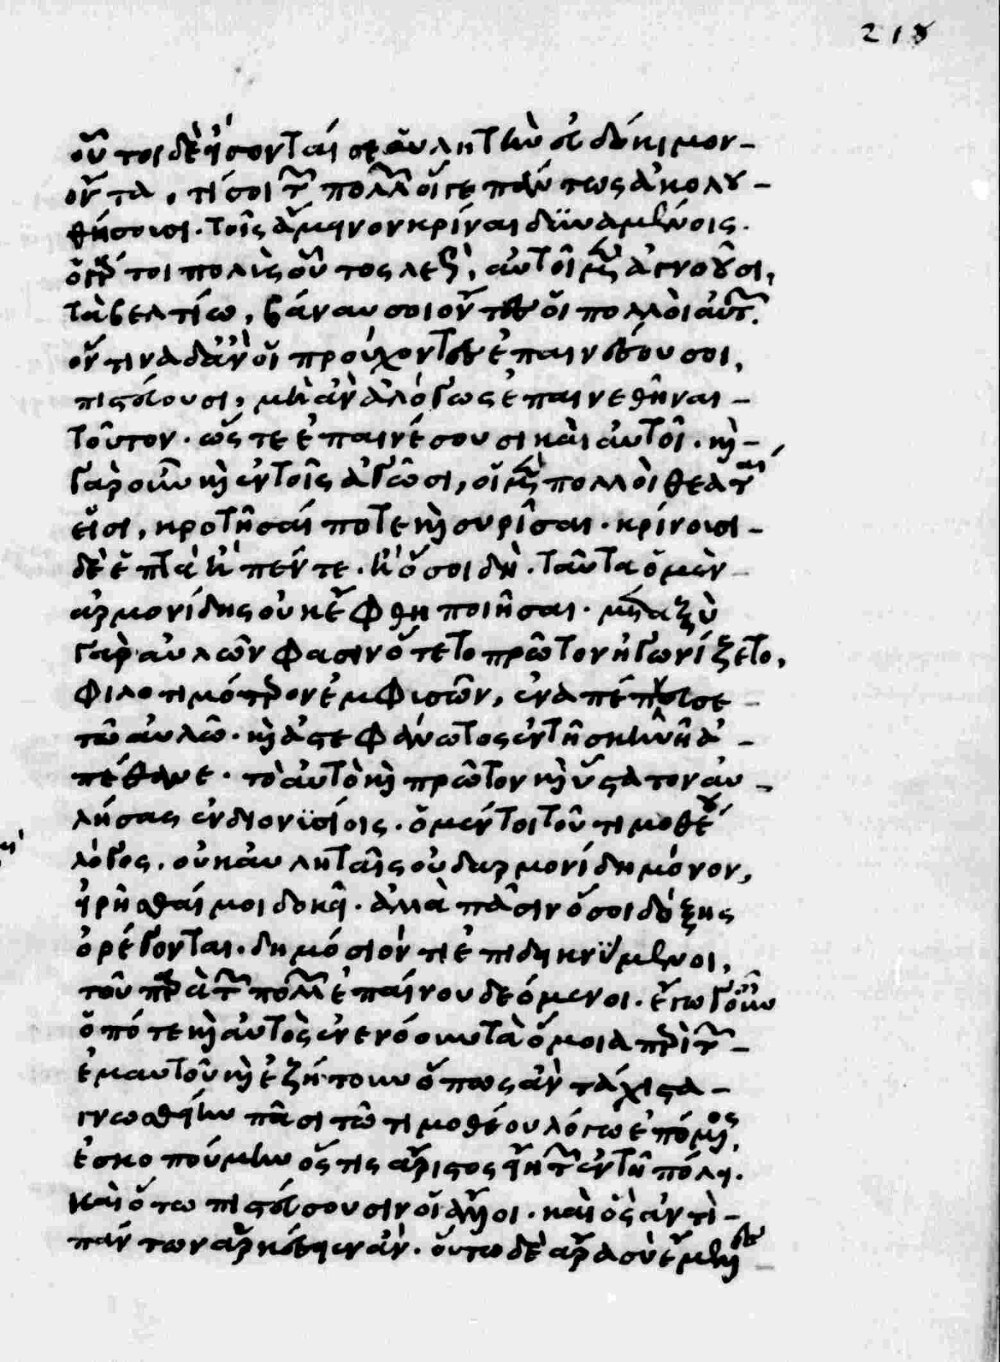 218
οὗτοι δὲ εἴσονταί σε αὐλητὴν εὐδόκιμον-
οὗτα, τί σοι τῶν πολλῶν οἵγε πάντως ἀκολου-
θήσουσι. τοῖς ἄμεινον κρίναι δυναμένοις.
ὁ γάρ τοι πολὺς οὗτος λεὼς, αὐτοὶ μὲν ἀγνοοῦσι,
τὰ βελτίω, βάναυσοι ὄντες οἱ πολλοὶ αὐτῶν.
ὅντινα δ' ἂν οἱ προύχοντες ἐπαινέσουσι,
πιστεύουσι, μὴ ἂν ἀλόγως ἐπαινεθῆναι
τοῦτον. ὥστε ἐπαινέσουσι καὶ αὐτοί. καὶ
γὰρ οὖν καὶ ἐν τοῖς ἀγῶσι, οἱ μὲν πολλοὶ θεαταὶ
εἴσι, κροτῆσαί ποτε καὶ συρίσαι. κρίνουσι
δὲ ἑπτὰ ἢ πέντε. ἢ ὅσοι δή. ταῦτα ὁ μὲν
ἁρμονίδης οὐκ ἔφθη ποιῆσαι. μεταξὺ
γὰρ αὐλῶν φασιν ὅτε τὸ πρῶτον ἠγωνίζετο,
φιλοτιμότερον ἐμφυσῶν, ἐναπέπνευσε
τῷ αὐλῷ. καὶ ἀστεφάνωτος ἐν τῇ σκηνῇ ἀ-
πέθανε. τὸ αὐτὸ καὶ πρῶτον καὶ ὕστατον αὐ-
λήσας ἐν διονυσίοις. ὁ μέντοι τοῦ τιμοθέου
λόγος, οὐκ αὐληταῖς οὐδ' ἁρμονίδη μόνον,
εἰρῆσθαί μοι δοκεῖ. ἀλλὰ πᾶσιν ὅσοι δόξης
ὀρέγονται. δημόσιόν τι ἐπιδεικνύμενοι,
τοῦ παρὰ τῶν πολλῶν ἐπαίνου δεόμενοι. ἔγωγ' οὖν
ὁπότε καὶ αὐτὸς ἐνενόουν τὰ ὅμοια περὶ τῶν
ἐμαυτοῦ καὶ ἐζήτουν ὅπως ἂν τάχιστα
γνωσθείην πᾶσι τῷ τιμοθέου λόγῳ ἑπόμενος,
ἐσκοπούμην ὅστις ἄριστος εἴη τῶν ἐν τῇ πόλει.
καὶ ὅτω πιστεύσουσιν οἱ ἄλλοι. καὶ ὃς ἀντὶ
πάντων ἀρκέσειεν ἄν. οὕτω δὲ ἄρα σὺ ἔμελλες